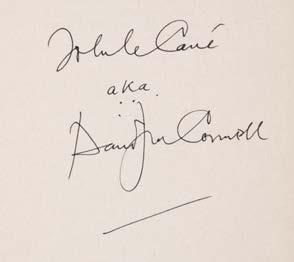 John le Carré
aka
David Cornwell